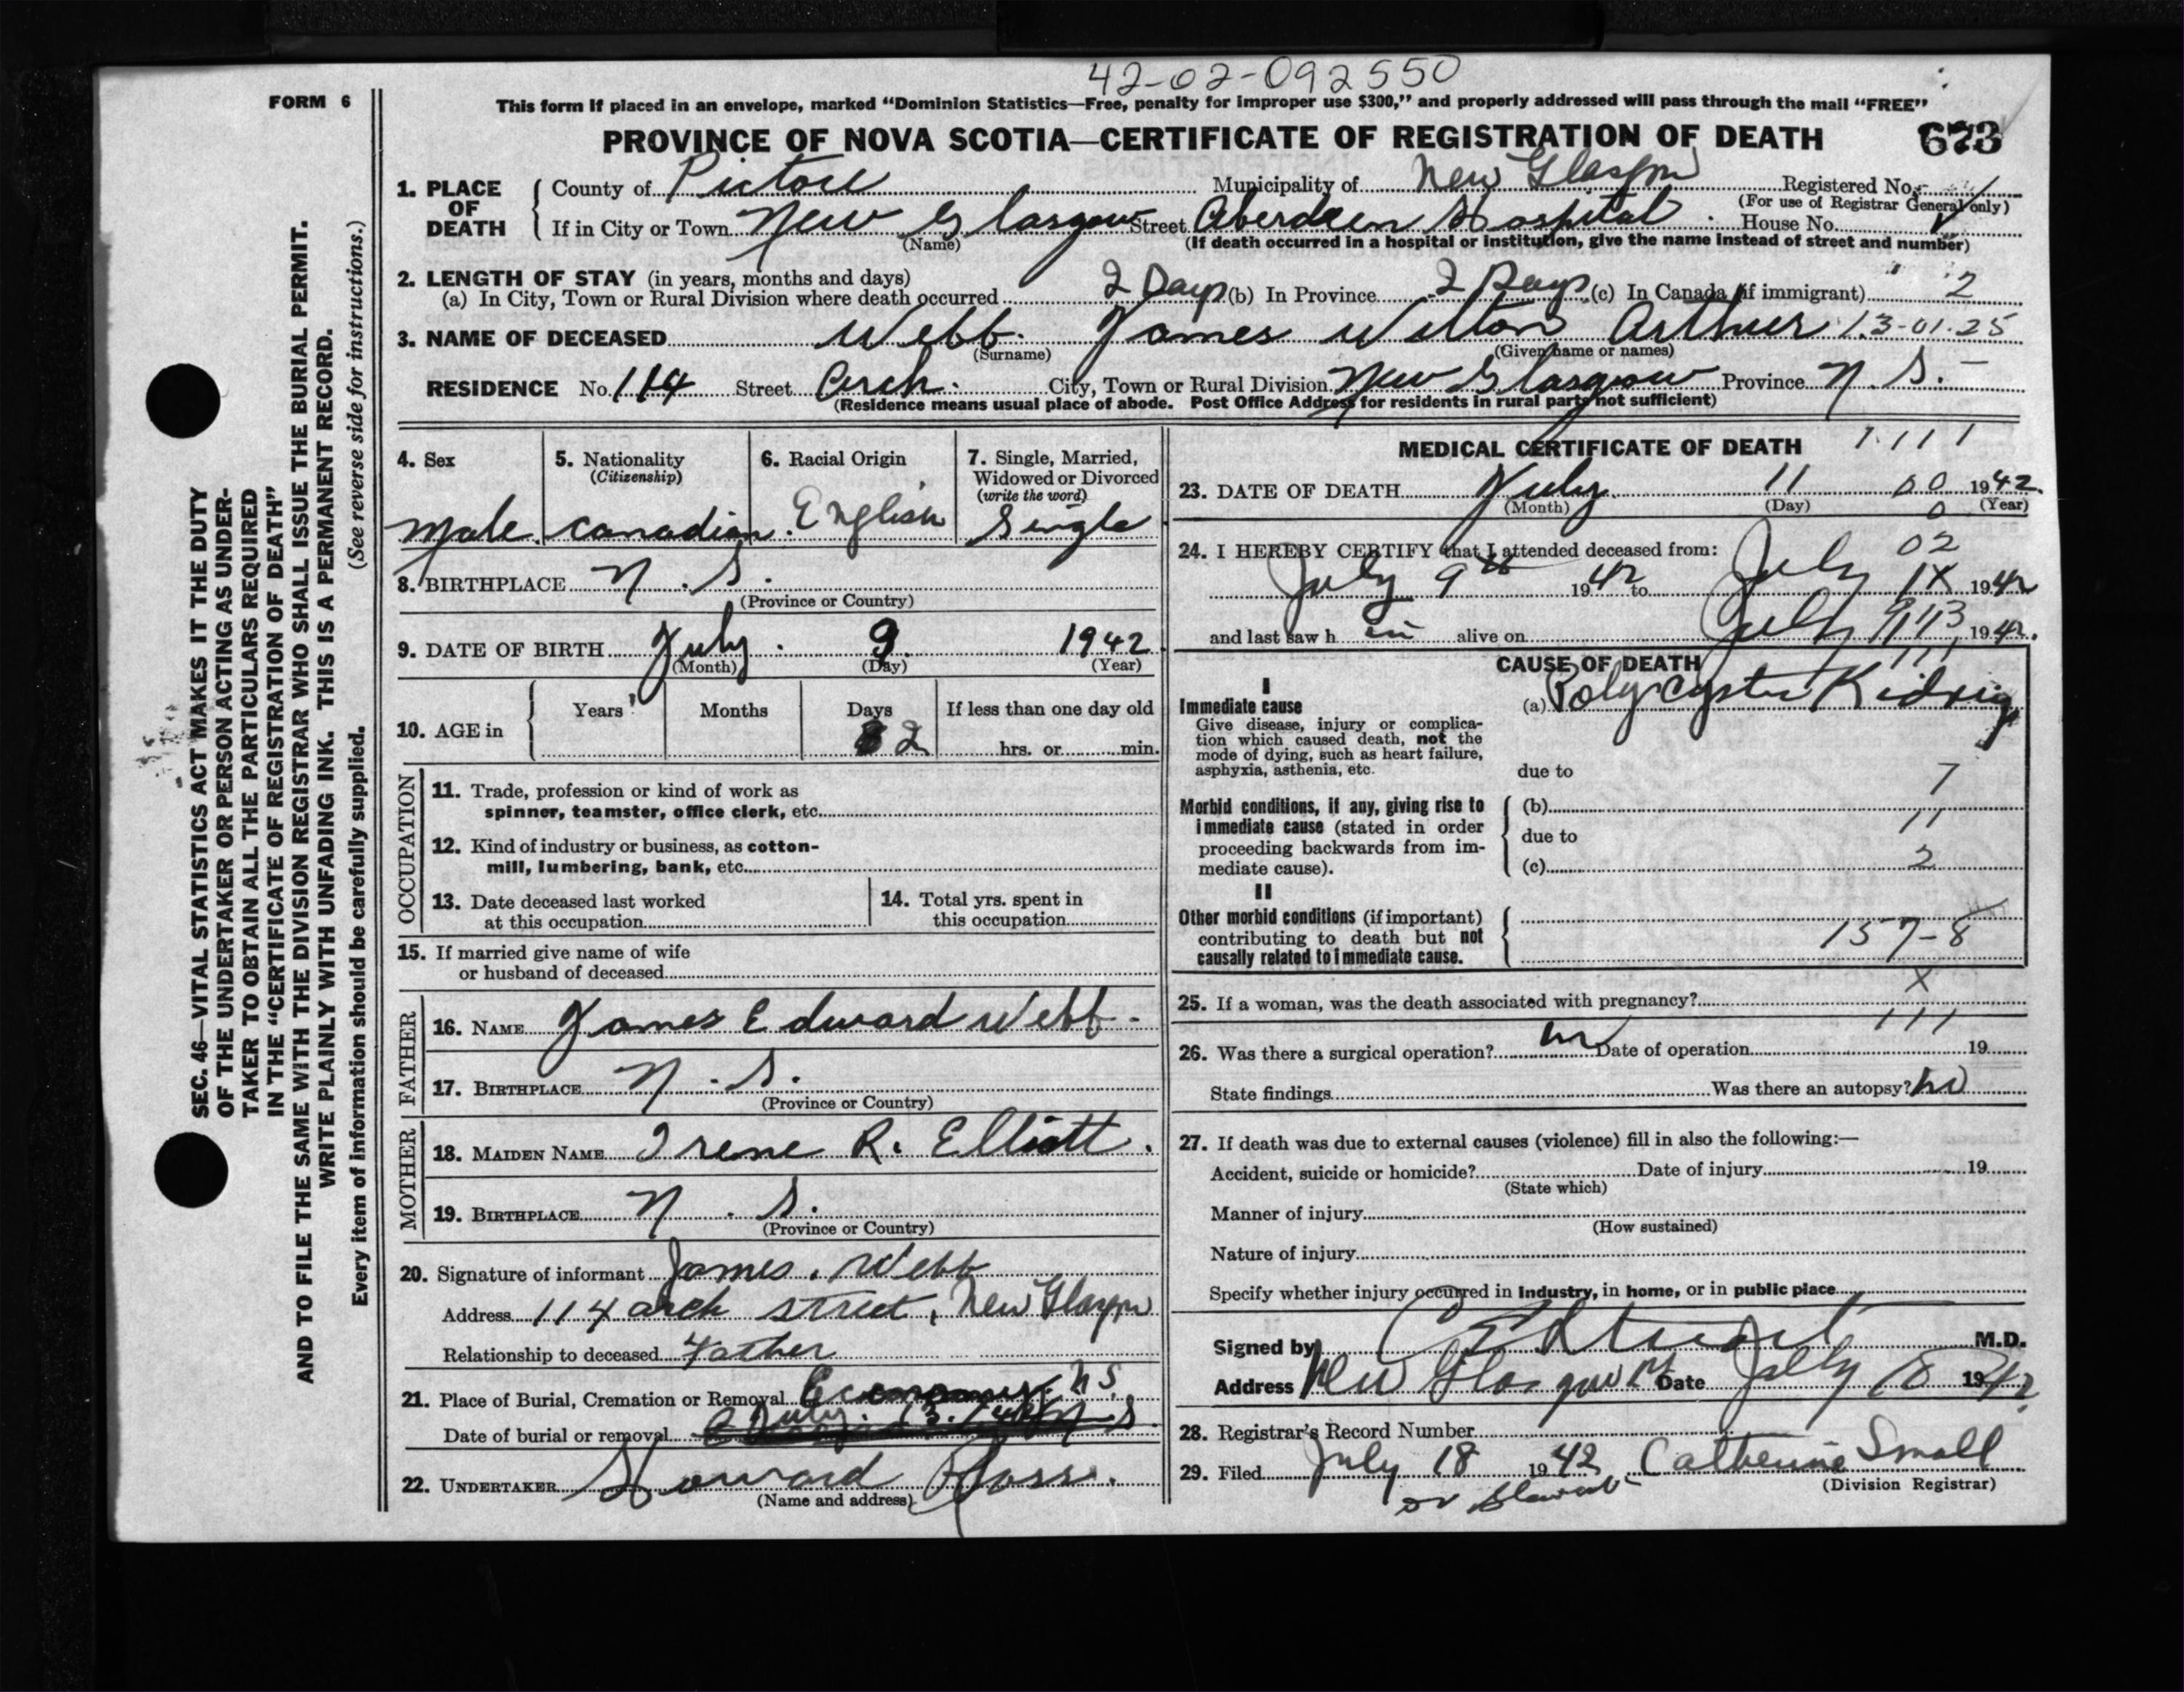 42-02-092550
FORM 6
This form if placed in an envelope, marked “Dominion Statistics—Free, penalty for improper use $300,” and properly addressed will pass through the mail “FREE”
PROVINCE OF NOVA SCOTIA—CERTIFICATE OF REGISTRATION OF DEATH 673
1. PLACE OF DEATH County of Pictou Municipality of New Glasgow Registered No.
(For use of Registrar General only)
If in City or Town New Glasgow Street Aberdeen Hospital House No.
(Name) (If death occurred in a hospital or institution, give the name instead of street and number)
2. LENGTH OF STAY (in years, months and days)
(a) In City, Town or Rural Division where death occurred 2 Days (b) In Province 2 Days (c) In Canada (if immigrant) 2
3. NAME OF DECEASED Webb. James Wilton Arthur 13-01-25
(Surname) (Given name or names)
RESIDENCE No. 114 Street Arch. City, Town or Rural Division New Glasgow Province N.S.
(Residence means usual place of abode. Post Office Address for residents in rural parts not sufficient)
4. Sex 5. Nationality (Citizenship) 6. Racial Origin 7. Single, Married, Widowed or Divorced (write the word)
Male. Canadian. English Single
8. BIRTHPLACE N.S.
(Province or Country)
9. DATE OF BIRTH July. 9. 1942
(Month) (Day) (Year)
10. AGE in Years Months Days If less than one day old
2 hrs. or min.
OCCUPATION
11. Trade, profession or kind of work as
spinner, teamster, office clerk, etc.
12. Kind of industry or business, as cotton-
mill, lumbering, bank, etc.
13. Date deceased last worked
at this occupation
14. Total yrs. spent in
this occupation
15. If married give name of wife
or husband of deceased
FATHER
16. NAME James Edward Webb.
17. BIRTHPLACE N.S.
(Province or Country)
MOTHER
18. MAIDEN NAME Irene R. Elliott.
19. BIRTHPLACE N.S.
(Province or Country)
20. Signature of informant James. Webb
Address 114 Arch street, New Glasgow
Relationship to deceased Father
21. Place of Burial, Cremation or Removal Economy. N.S.
Date of burial or removal July. 13.
22. UNDERTAKER Howard Ross.
(Name and address)
MEDICAL CERTIFICATE OF DEATH 1111
23. DATE OF DEATH July 11 00 1942.
(Month) (Day) (Year)
0
24. I HEREBY CERTIFY that I attended deceased from:
02
July 9th 1942 to July 1942
and last saw h im alive on July 1942.
CAUSE OF DEATH
I
Immediate cause
Give disease, injury or complica-
tion which caused death, not the
mode of dying, such as heart failure,
asphyxia, asthenia, etc.
(a) Polycystic Kidney
due to
7
Morbid conditions, if any, giving rise to
immediate cause (stated in order
proceeding backwards from im-
mediate cause).
(b)
11
due to
2
(c)
II
Other morbid conditions (if important)
contributing to death but not
causally related to immediate cause.
157-8
25. If a woman, was the death associated with pregnancy? X
111
26. Was there a surgical operation? no Date of operation 19
State findings Was there an autopsy? no
27. If death was due to external causes (violence) fill in also the following:—
Accident, suicide or homicide? Date of injury 19
(State which)
Manner of injury
(How sustained)
Nature of injury
Specify whether injury occurred in Industry, in home, or in public place
Signed by M.D.
Address New Glasgow Date July 1942
28. Registrar's Record Number
29. Filed July 18 1942 Catherine Small
(Division Registrar)
SEC. 46—VITAL STATISTICS ACT MAKES IT THE DUTY
OF THE UNDERTAKER OR PERSON ACTING AS UNDER-
TAKER TO OBTAIN ALL THE PARTICULARS REQUIRED
IN THE “CERTIFICATE OF REGISTRATION OF DEATH”
AND TO FILE THE SAME WITH THE DIVISION REGISTRAR WHO SHALL ISSUE THE BURIAL PERMIT.
WRITE PLAINLY WITH UNFADING INK. THIS IS A PERMANENT RECORD.
Every item of information should be carefully supplied. (See reverse side for instructions.)